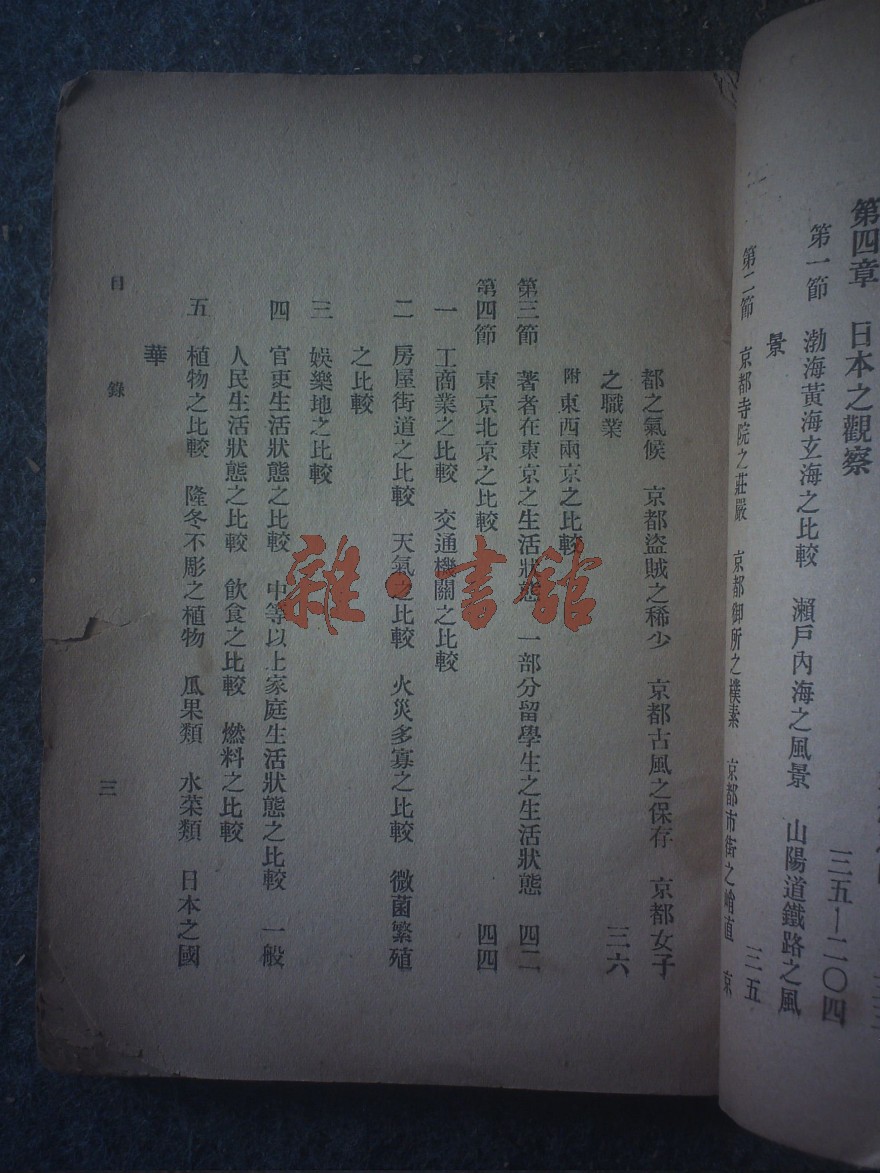 第四章　日本之觀察
三五—二〇四
第一節　渤海黃海玄海之比較　瀨戶內海之風景　山陽道鐵路之風
景
三五
第二節　京都寺院之莊嚴　京都御所之樸素　京都市街之 直　京
都之氣候　京都盜賊之稀少　京都古風之保存　京都女子
之職業　三六
附東西兩京之比較
第三節　著者在東京之生活狀態　一部分留學生之生活狀態　四二
第四節　東京北京之比較　四四
一　工商業之比較　交通機關之比較
二　房屋街道之比較　天氣之比較　火災多寡之比較　微菌繁殖
之比較
三　娛樂地之比較
四　官吏生活狀態之比較　中等以上家庭生活狀態之比較　一般
人民生活狀態之比較　飲食之比較　燃料之比較
五　植物之比較　隆冬不彫之植物　瓜果類　水菜類　日本之國
華
目　錄　三
雜·書館